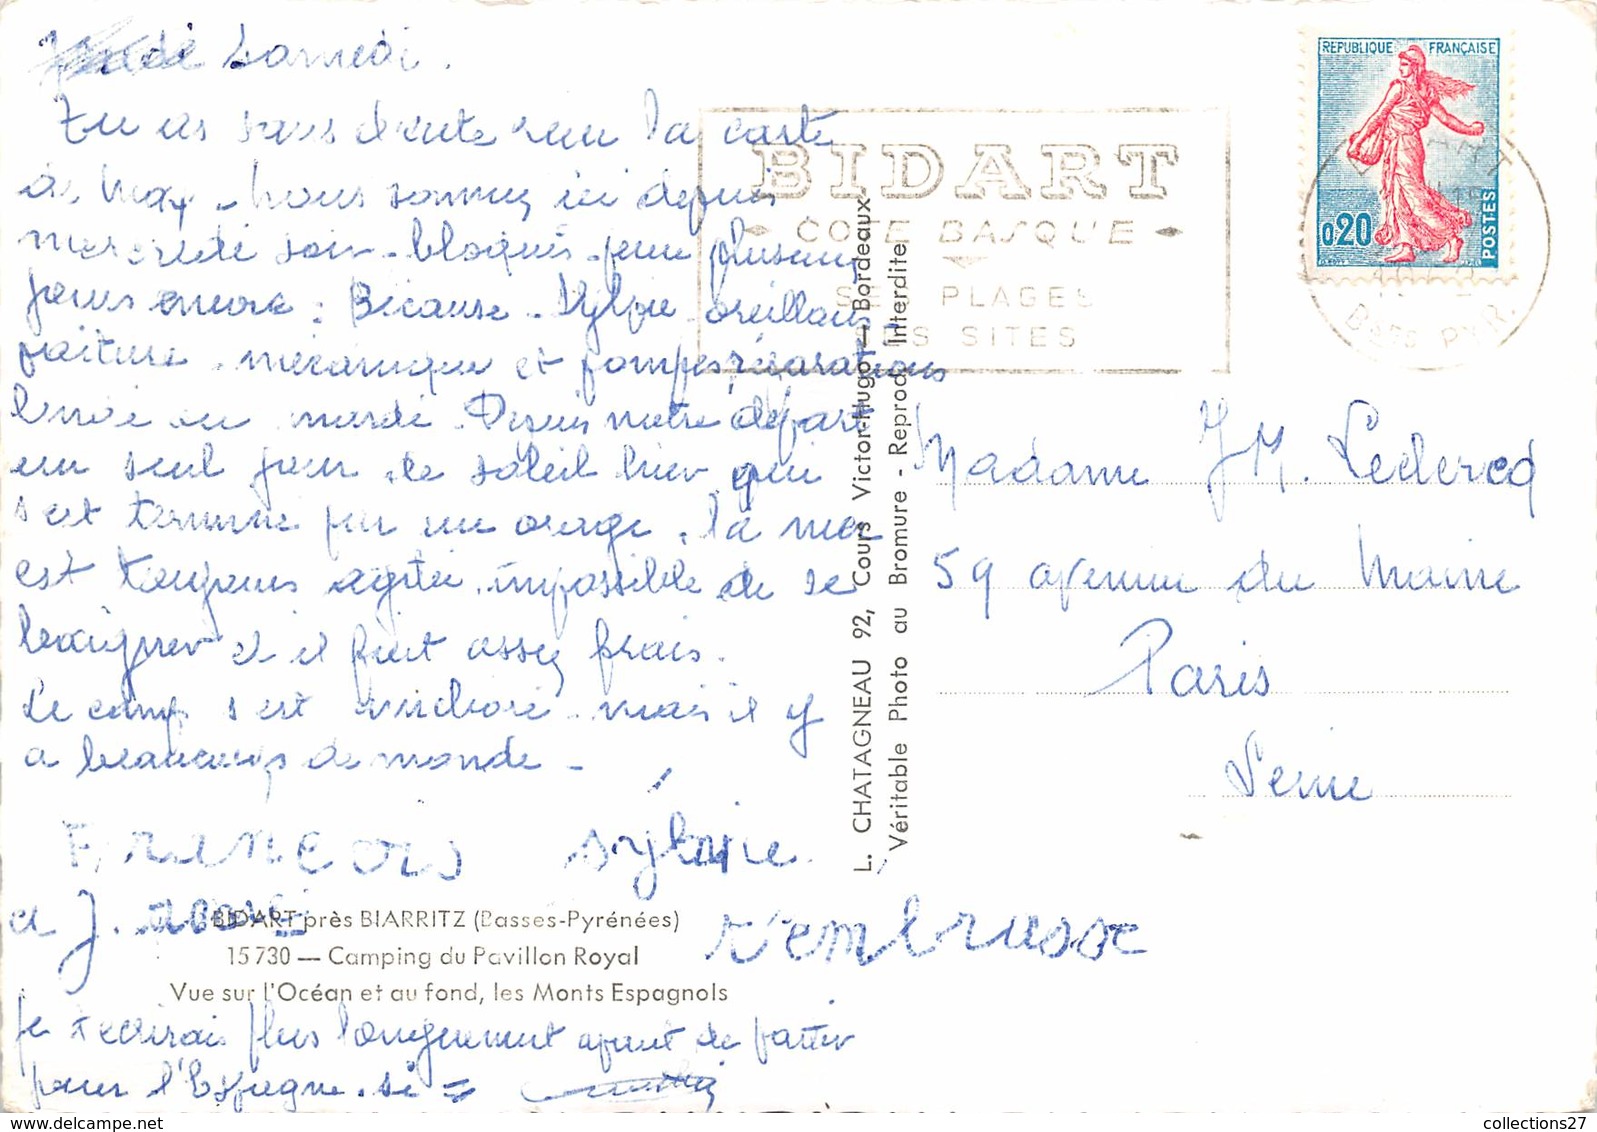 Samedi.
Tu as sans doute reçu la carte
de May. Nous sommes ici depuis
mercredi soir. bloqués pour plusieurs
jours encore. Bicause. Sylvie oreillons
voiture. mécanique et pompes, réparations
en mardi. Depuis notre départ
un seul jour de soleil hier qui
s'est terminé par un orage. la mer
est toujours agitée. impossible de se
baigner et il fait assez frais.
Le camp s'est amélioré. mais il y
a beaucoup de monde -
FRANCOIS Sylvie
et J.
t'embrasse
je t'écrirai plus longuement avant de partir
pour l'Espagne. si =
BIDART près BIARRITZ (Basses-Pyrénées)
15730 — Camping du Pavillon Royal
Vue sur l'Océan et au fond, les Monts Espagnols
L. CHATAGNEAU 92, Cours Victor-Hugo — Bordeaux
Véritable Photo au Bromure - Reprod. Interdite
BIDART
COTE BASQUE
SES PLAGES
SES SITES
REPUBLIQUE FRANÇAISE
0,20
POSTES
BIDART
Bses PYR.
Madame J M. Leclercq
59 avenue du Maine
Paris
Seine
collections27